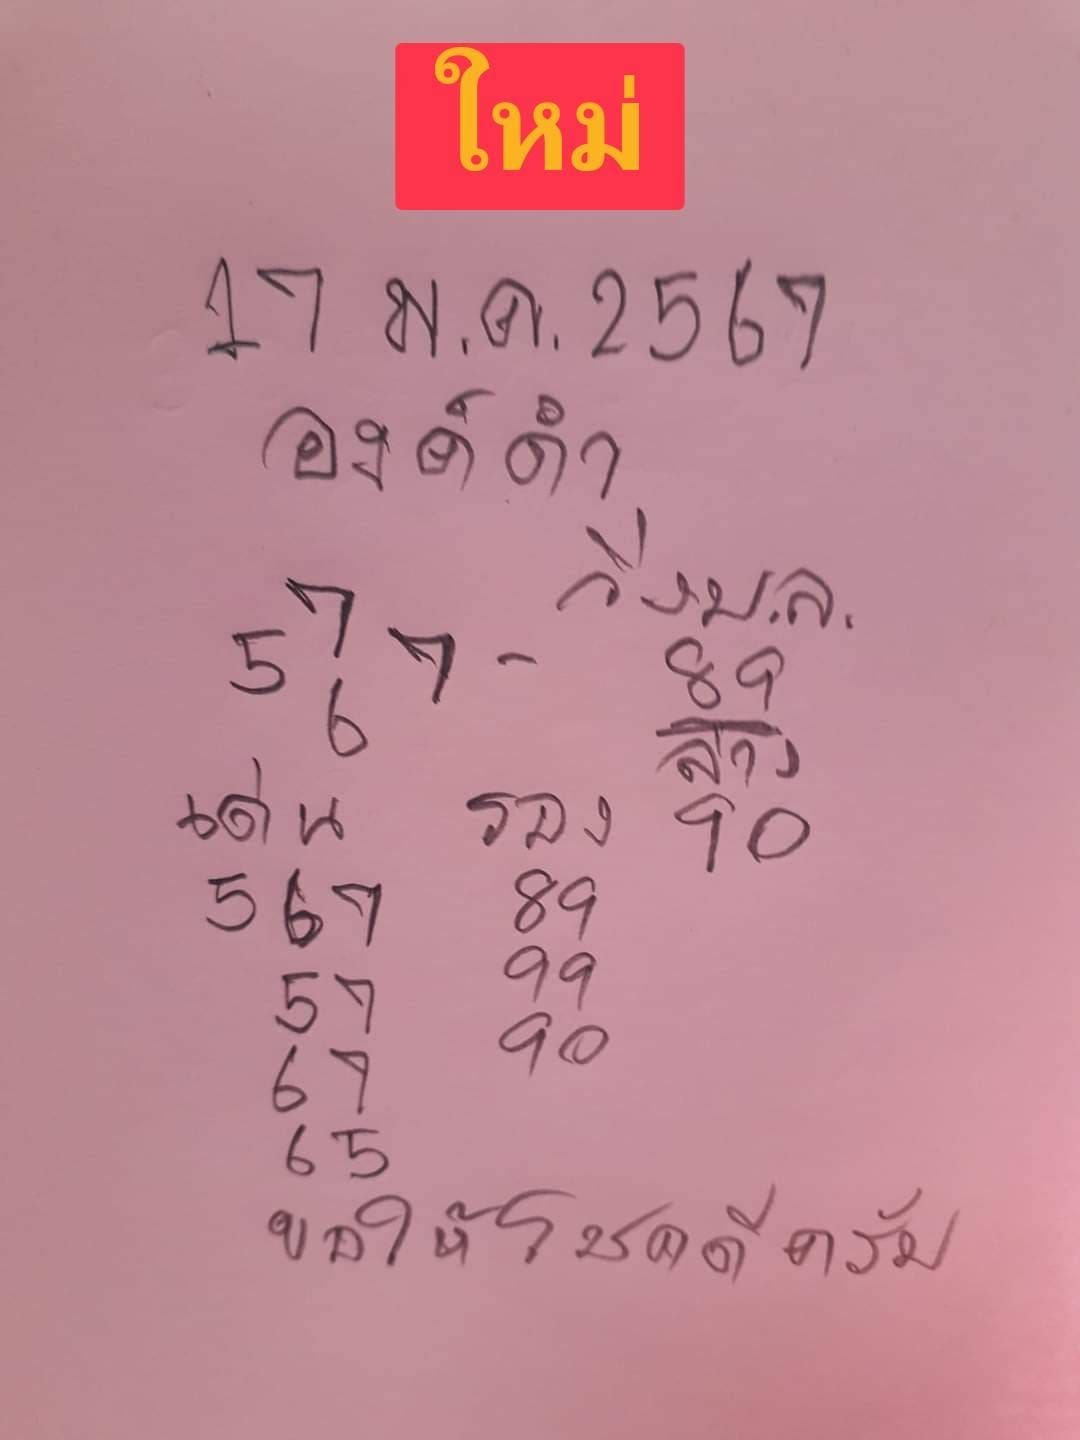 ใหม่
17 ม.ค. 2567
องค์ดำ
วิ่งบ.ล.
7
5 7 -
6
89
ล่าง
90
เด่น รอง
567 89
57 99
67 90
65
ขอให้โชคดีครับ